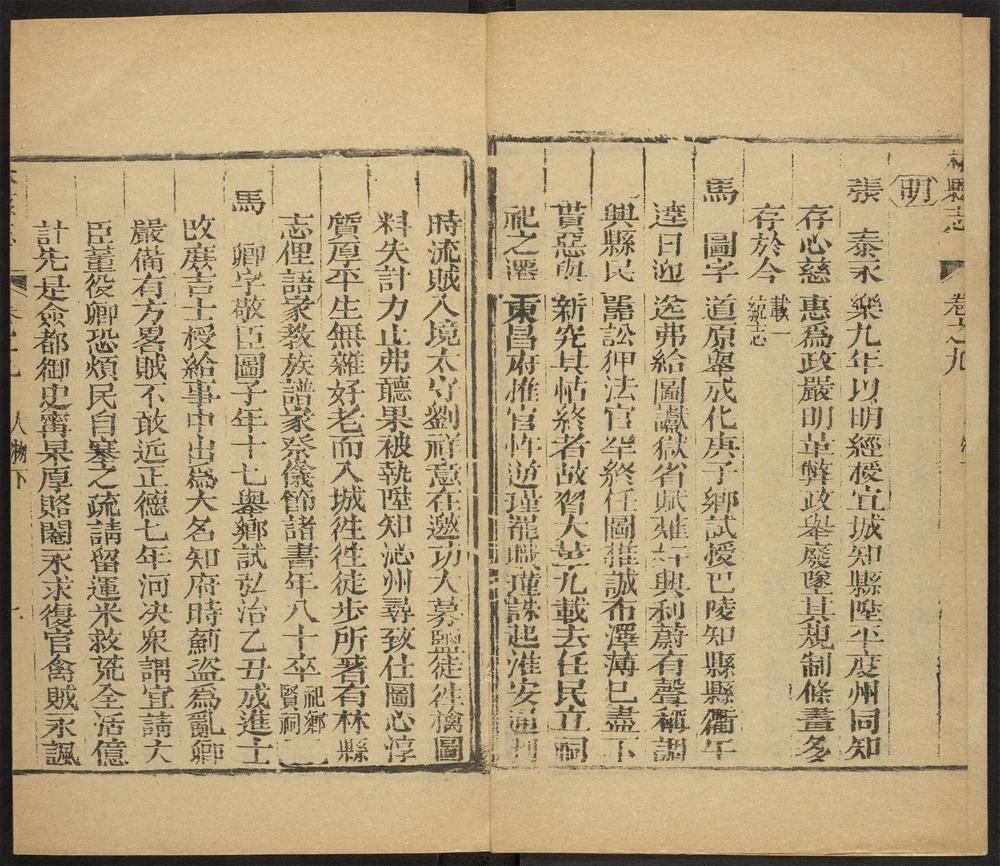 林縣志　卷之九
明
張　泰永樂九年以明經授宜城知縣陞平度州同知
存心慈惠爲政嚴明革弊政舉廢墜其規制條畫多
存於今載一統志
馬　圖字道原舉成化庚子鄉試授巴陵知縣縣衝午
逵日迎送弗給圖讞獄省賦雜興利蔚有聲稱調
興縣民嚚訟狎法官罕終任圖推誠布澤薄已盡下
貰惡與新究其怙終者故習大革九載去任民立祠
祀之遷東昌府推官忤逆瑾罷職瑾誅起淮安通判
時流賊入境太守劉祥意在邀功大募鹽徒徃擒圖
料失計力止弗聽果被執陞知沁州尋致仕圖心淳
質厚平生無雜好老而入城徃徃徒步所著有林縣
志俚語家教族譜家祭儀節諸書年八十卒祀鄉賢祠
馬　卿字敬臣圖子年十七舉鄉試弘治乙丑成進士
改庶吉士授給事中出爲大名知府時薊盜爲亂卿
嚴備有方畧賊不敢近正德七年河决衆謂宜請大
臣董役卿恐煩民自塞之疏請留運米救荒全活億
計先是僉都御史甯杲厚賂閹永求復官禽賊永諷
人物下